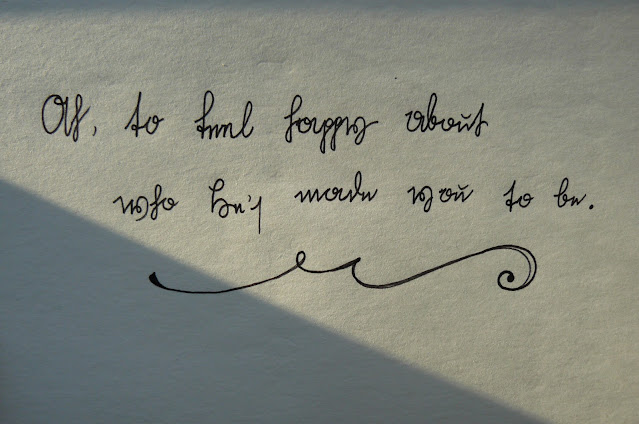 Ah, to feel happy about
who He's made you to be.